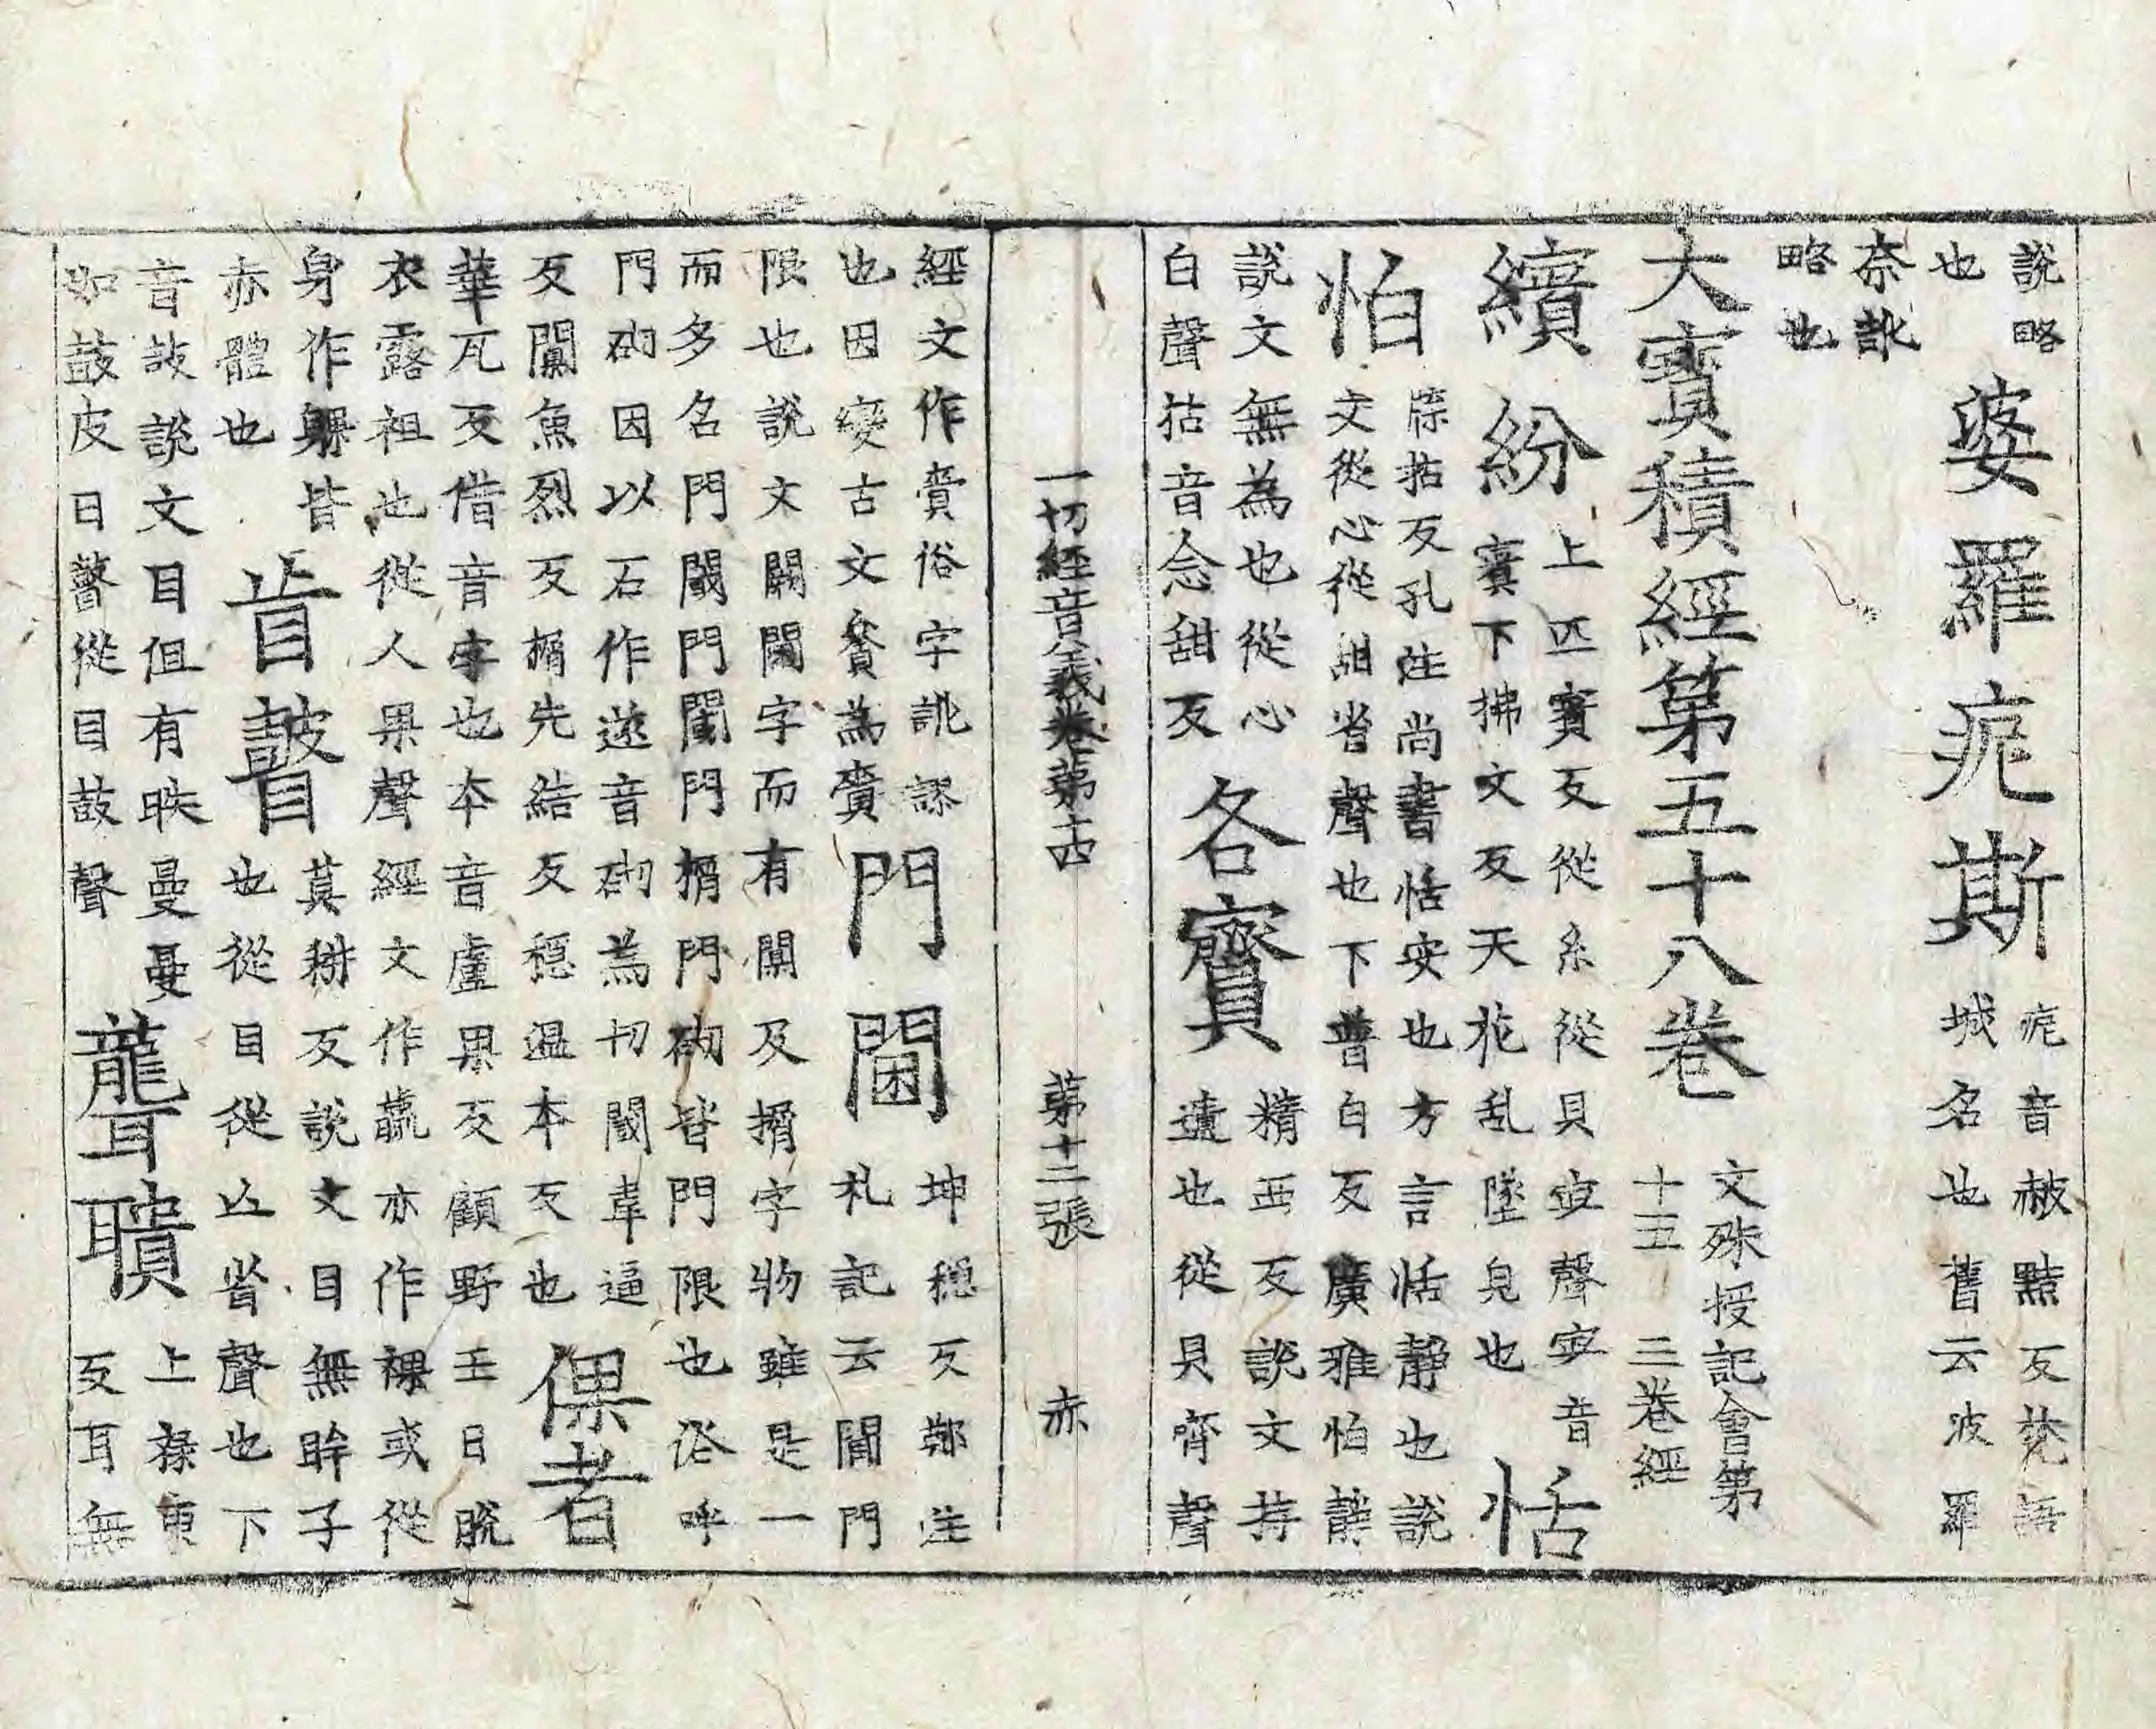 說略
也
婆羅痆斯
痆音赧黠反梵語
城名也舊云波羅
奈訛
略也
大寶積經第五十八卷
文殊授記會第
十五 三卷經
繽紛
上匹賓反從糸從貝宀聲宀音
賓下拂文反天花乱墜皃也
恬怕
牒拈反孔注尚書恬安也方言恬靜也說
文從心從甜省聲也下普白反廣雅怕靜
說文無為也從心
白聲拈音念甜反
各齎
精西反說文持
遺也從貝齊聲
一切經音義卷第十四 第十二張 赤
經文作賷俗字訛謬
也因變古文賫為齎
門閫
坤穩反鄭注
札記云閫門
限也說文闕閫字而有闑及㨷字物雖是一
而多名門閾門闑門㨷門砌皆門限也俗呼
門砌因以石作遂音砌為切閾韋逼
反闑魚烈反㨷先結反穩溫本反也
倮者
華瓦反借音字也本音盧果反顧野王曰脫
衣露袒也從人果聲經文作臝亦作裸或從
身作躶皆
赤體也
盲瞽
莫耕反說文目無眸子
也從目從亾省聲也下
音故說文目但有眹曼曼
如鼓皮曰瞽從目鼓聲
聾聵
上祿東
反耳無